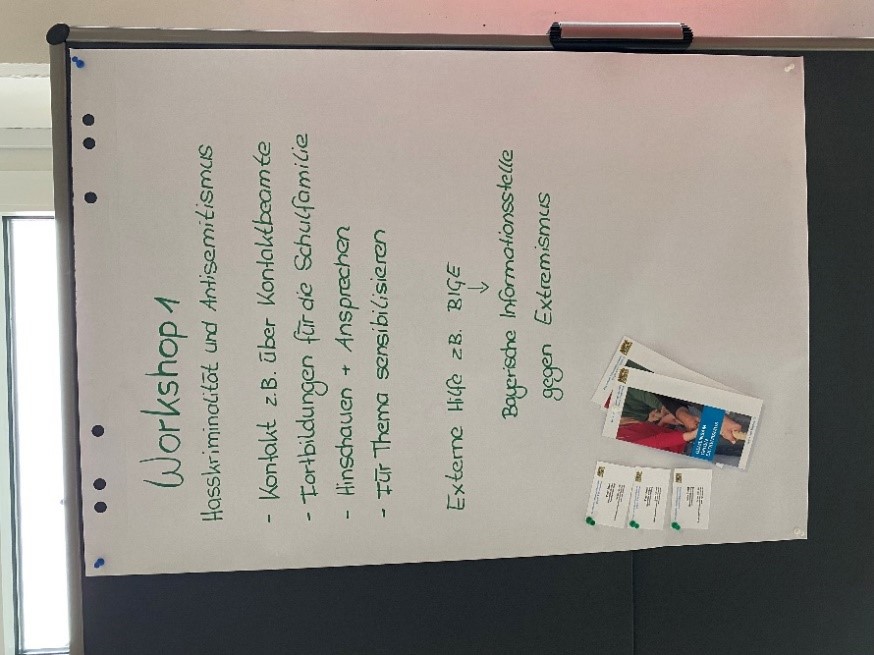 Workshop 1
Hasskriminalität und Antisemitismus
- Kontakt z.B. über Kontaktbeamte
- Fortbildungen für die Schulfamilie
- Hinschauen + Ansprechen
- Für Thema sensibilisieren
Externe Hilfe z.B. BIGE
↓
Bayerische Informationsstelle
gegen Extremismus